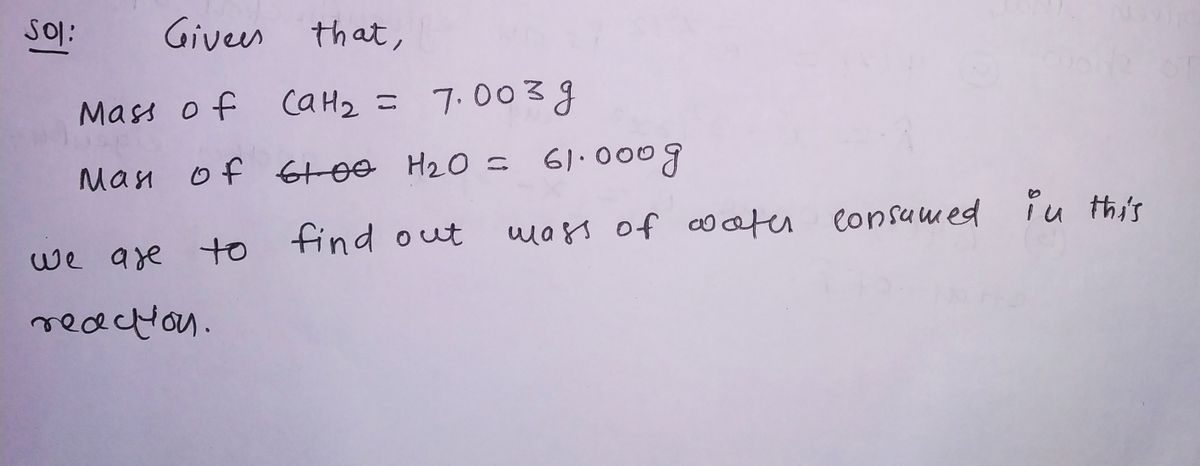 Sol: Given that,
Mass of CaH2 = 7.003 g
Mass of 61.00 H2O = 61.000g
we are to find out mass of water consumed in this
reaction.